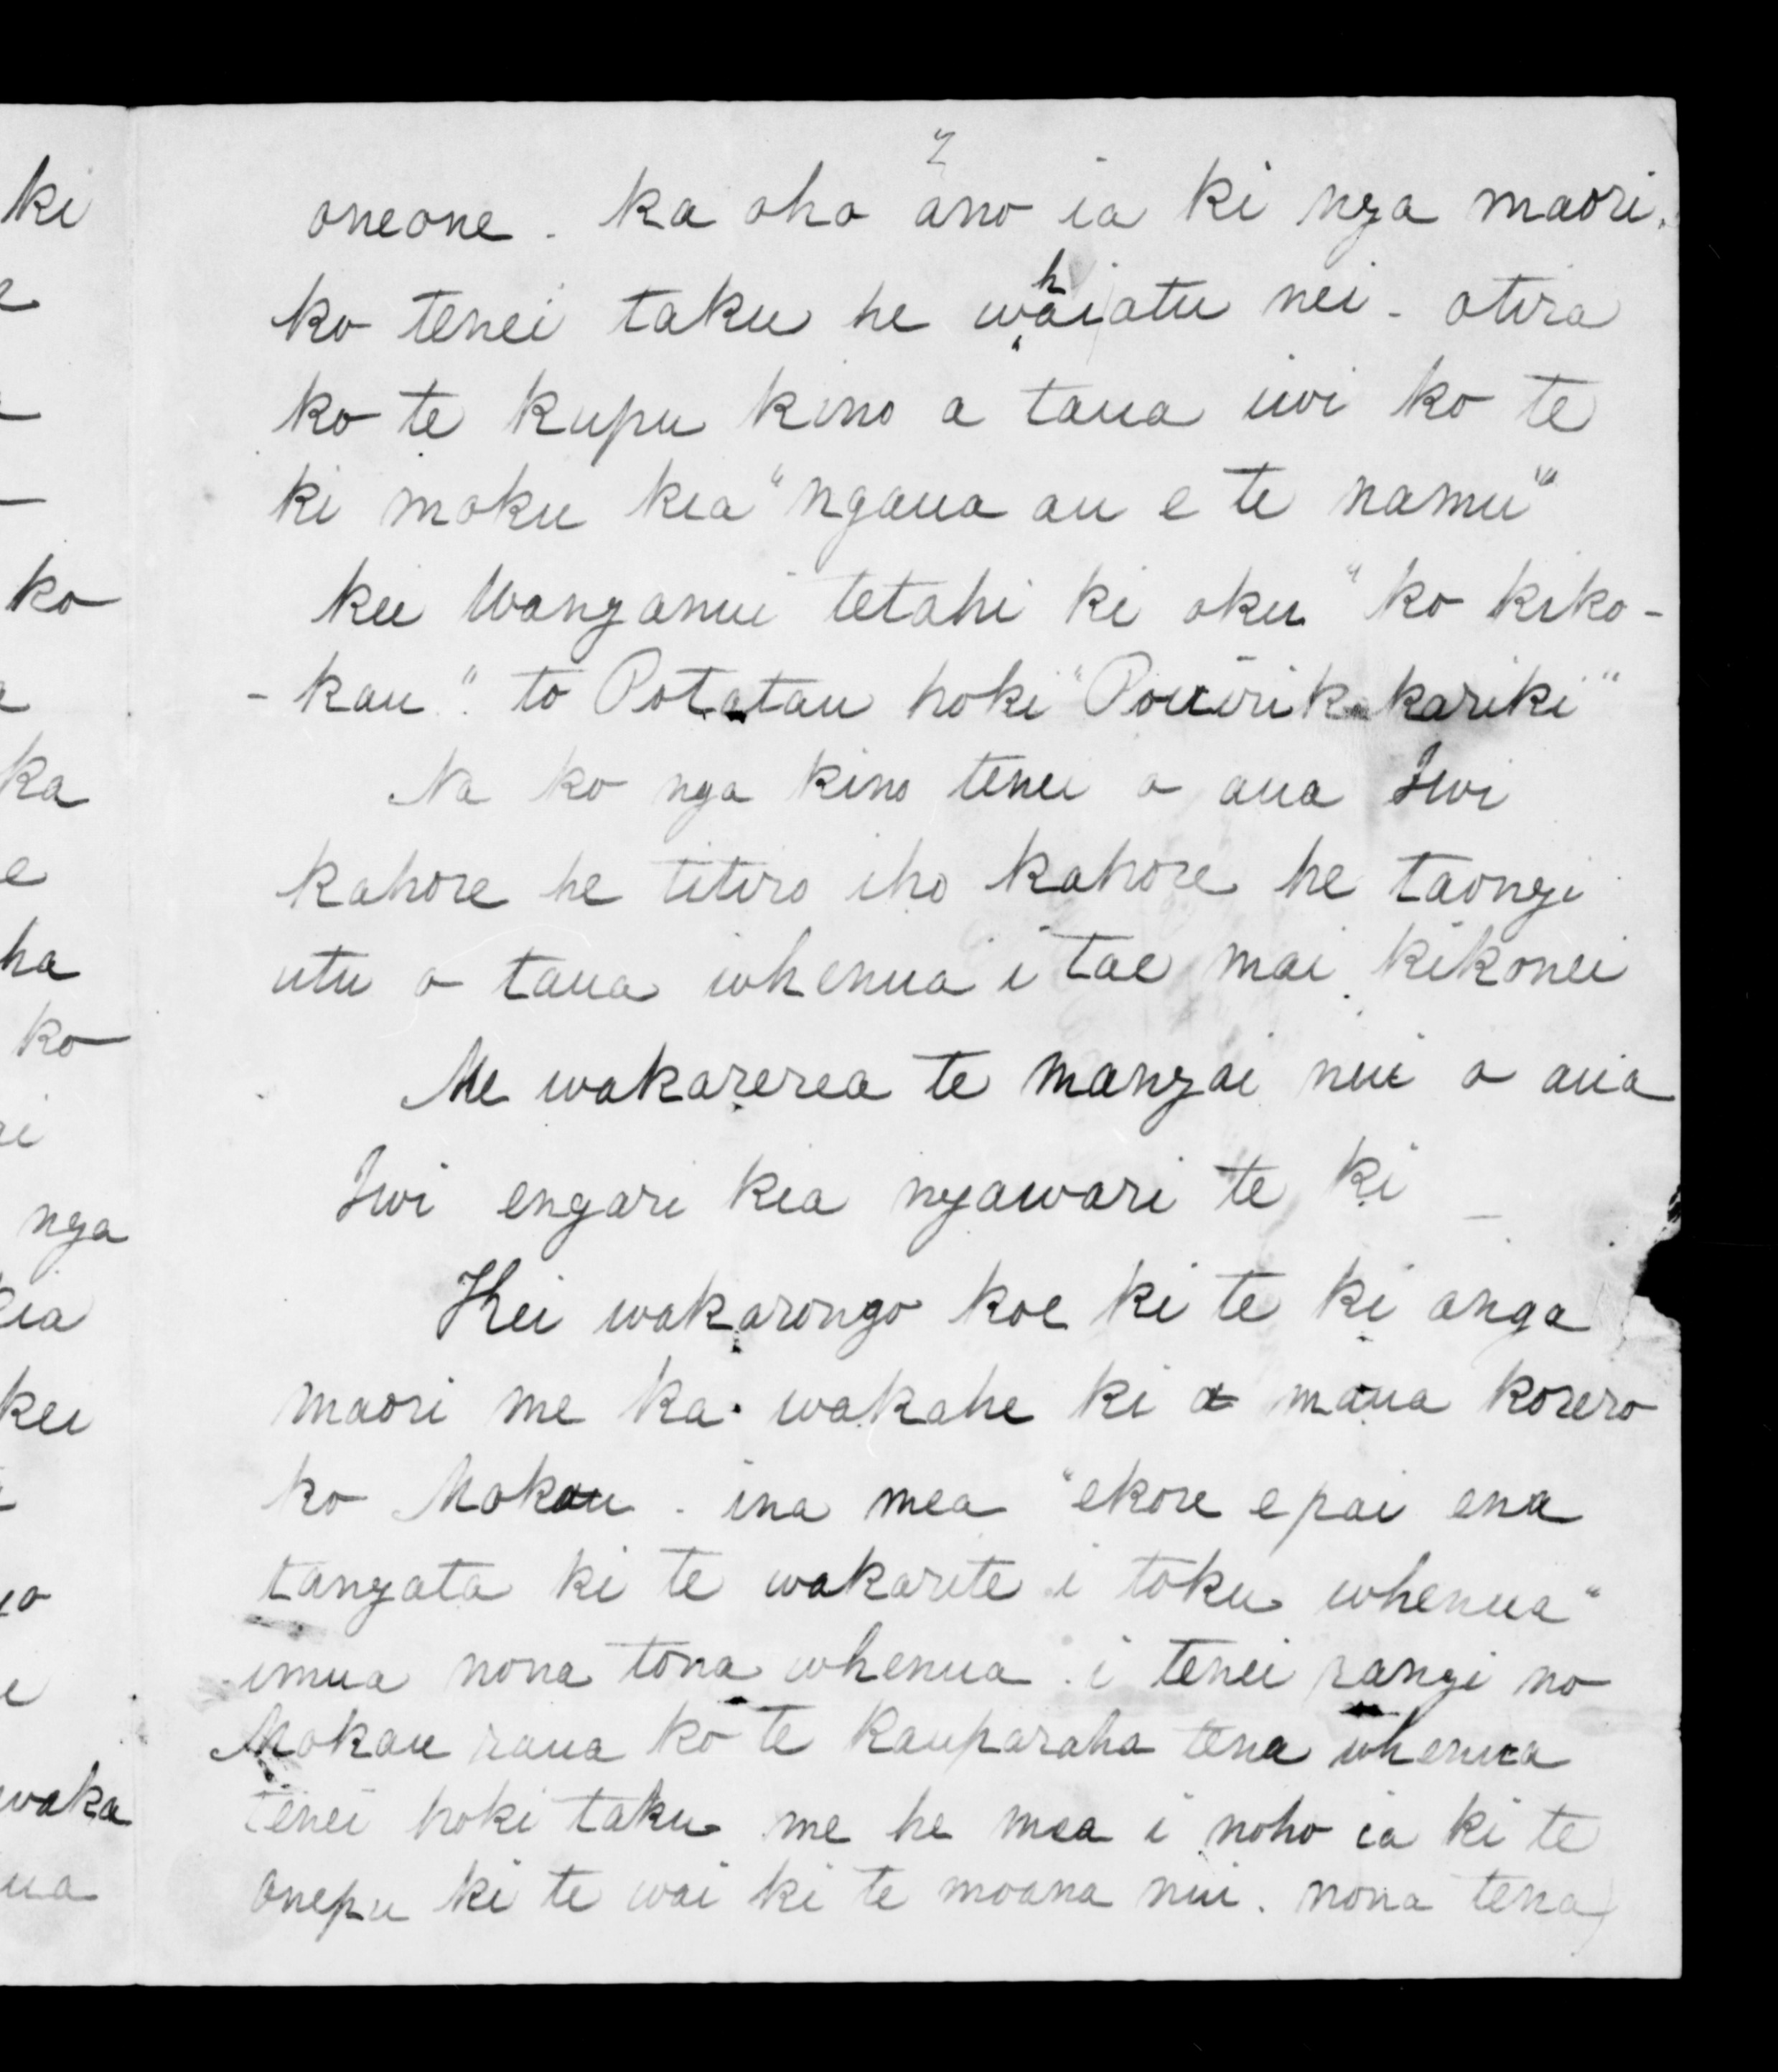 2
oneone. ka oho ano ia ki nga maori.
ko tenei taku he whaiatu nei - otira
ko te kupu kino a taua iwi ko te
ki moku kia "ngaua au e te namu"
kei Wanganui tetahi ki oku "ko kiko-
-kau". to Potatau hoki "Pouirikakariki"
Na ko nga kino tenei o aua Iwi
kahore he titiro iho kahore he taongi
utu o taua whenua i tae mai kikonei
Me wakarerea te mangai nui o aua
Iwi engari kia ngawari te ki
Kei wakarongo koe ki te ki anga
maori me ka wakahe ki a maua korero
ko Mokau. ina mea "ekore e pai ena
tangata ki te wakarite i toku whenua"
imua nona tona whenua. i tenei rangi no
Mokau raua ko te Rauparaha tena whenua
tenei hoki taku me he mea i noho ia ki te
onepu ki te wai ki te moana nui. nona tena
ki
ko
ka
e
ha
ko
nga
kei
waka
ua